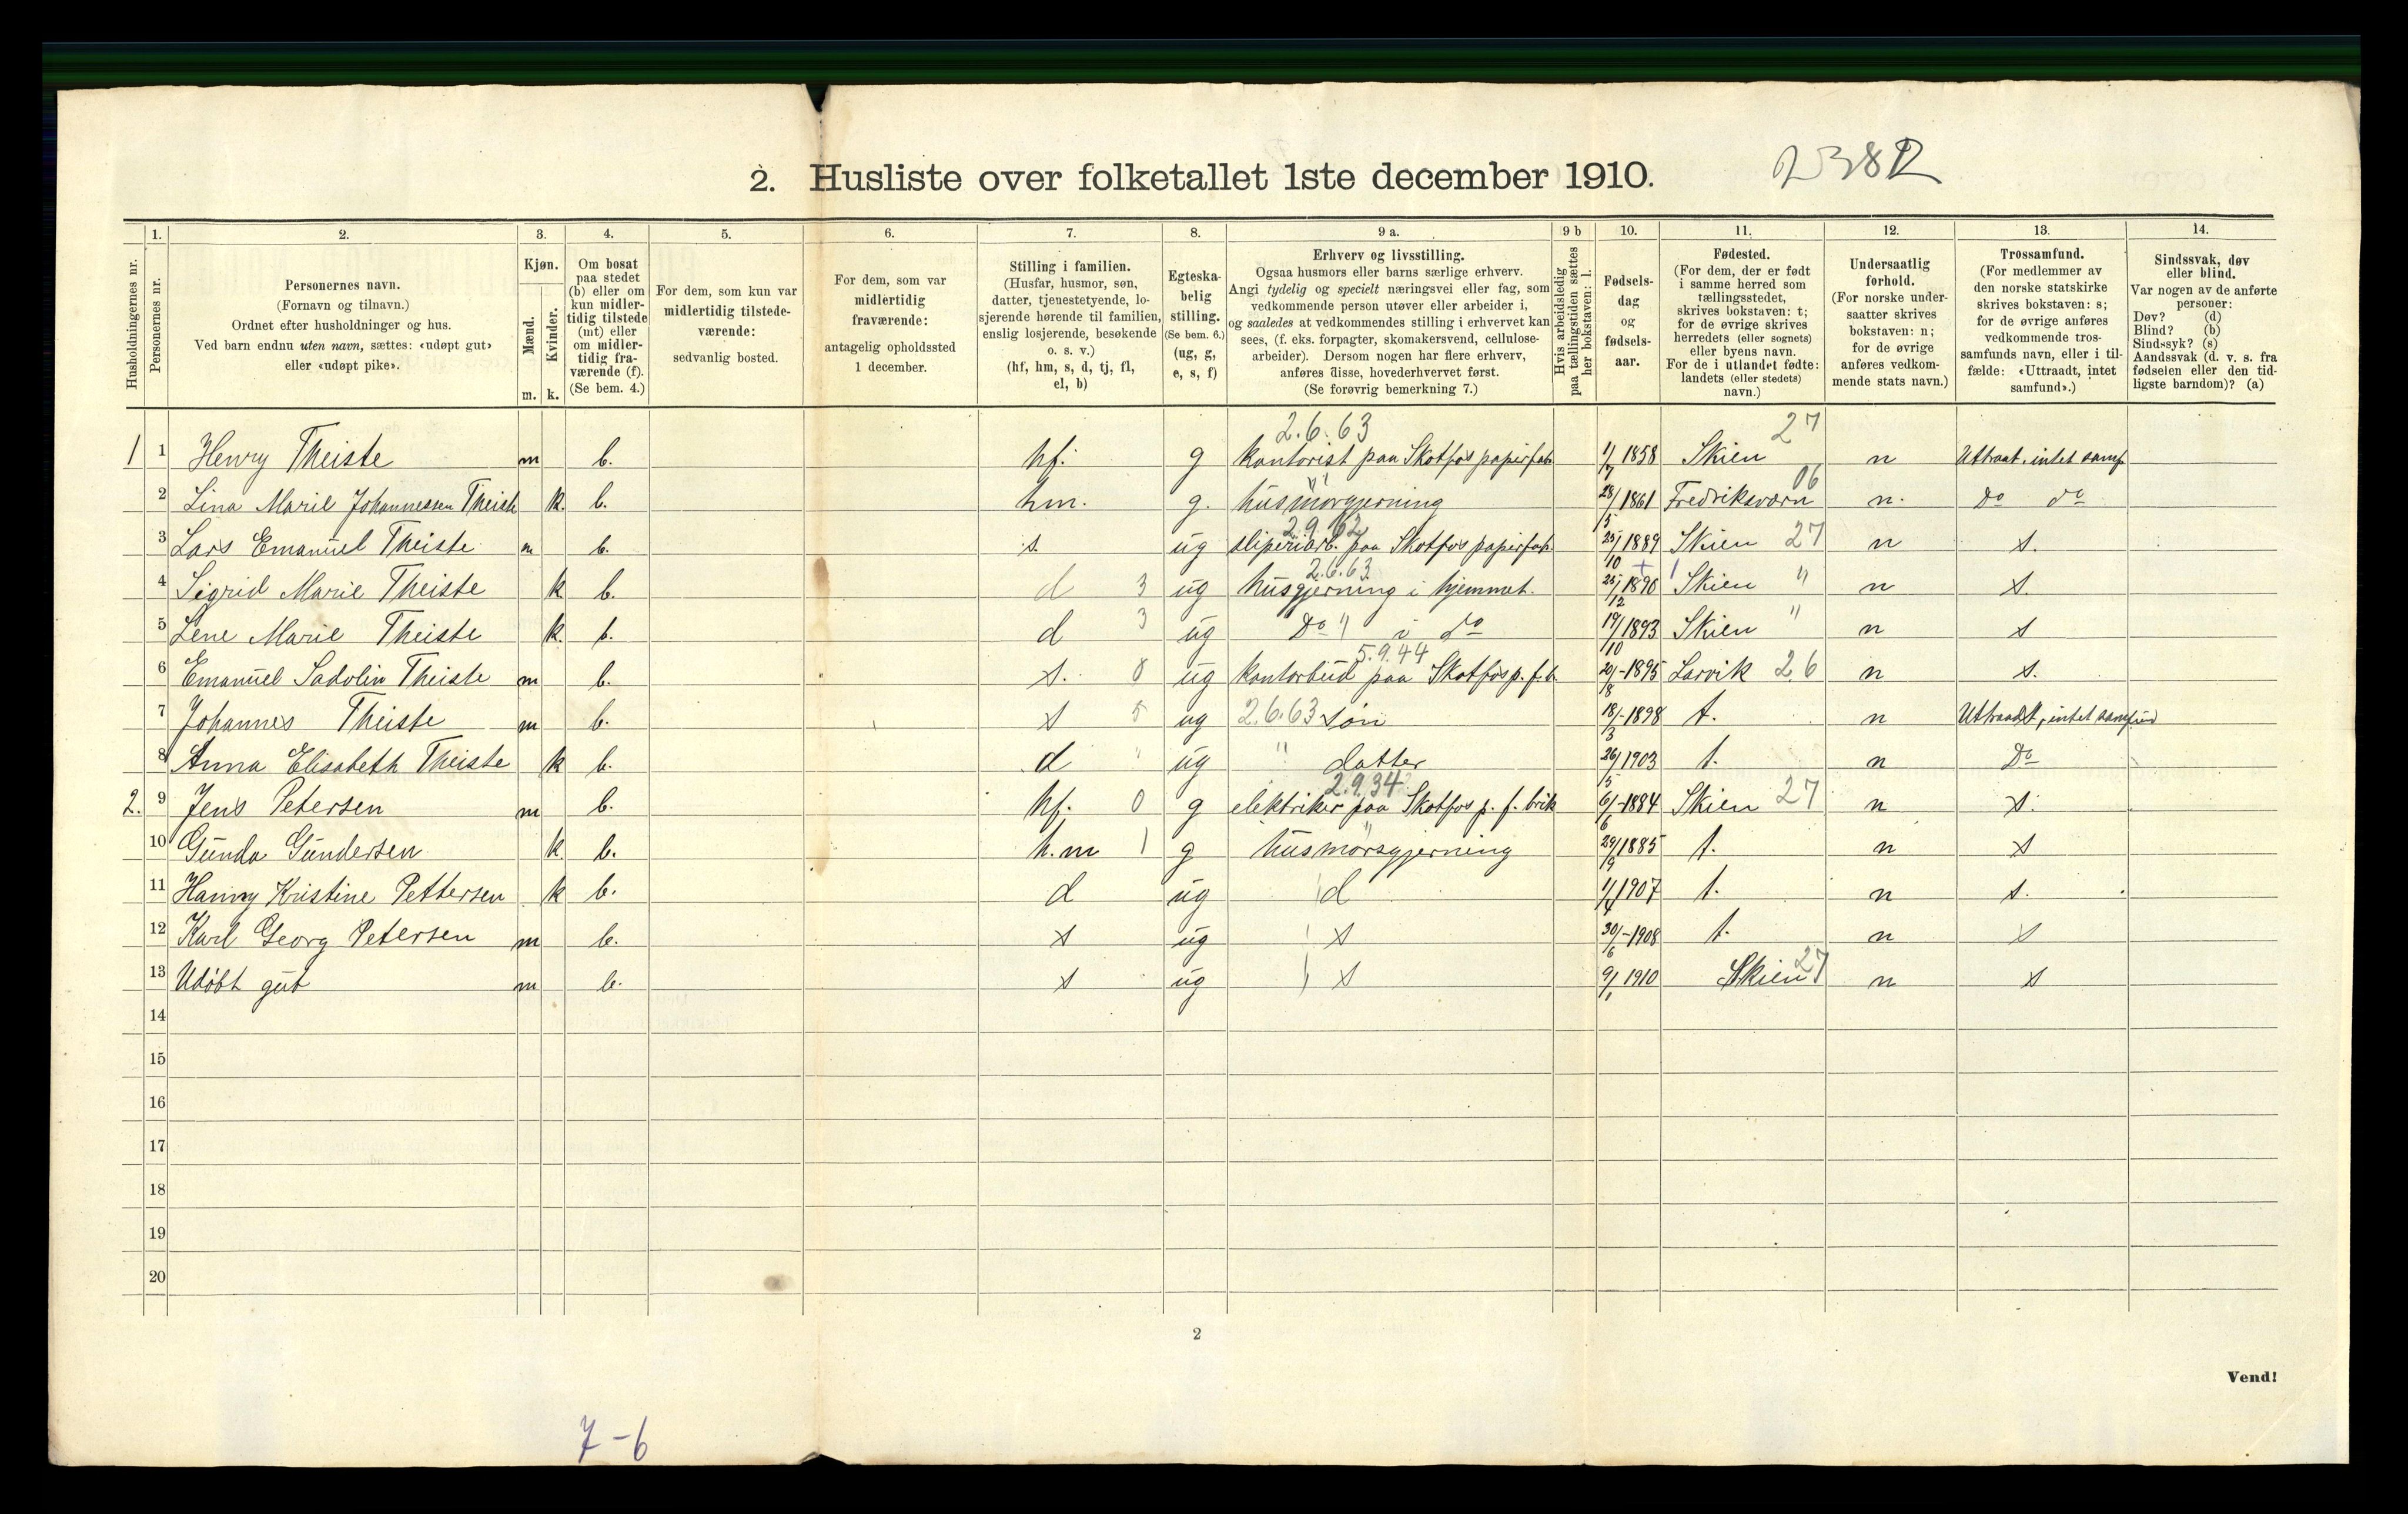 2. Husliste over folketallet 1ste december 1910.
2382
Husholdningernes nr.
1.
Personernes nr.
2.
Personernes navn.
(Fornavn og tilnavn.)
Ordnet efter husholdninger og hus.
Ved barn endnu uten navn, sættes: «udøpt gut»
eller «udøpt pike».
3.
Kjøn.
Mænd.
Kvinder.
m. k.
4.
Om bosat
paa stedet
(b) eller om
kun midler-
tidig tilstede
(mt) eller
om midler-
tidig fra-
værende (f).
(Se bem. 4.)
5.
For dem, som kun var
midlertidig tilstede-
værende:
sedvanlig bosted.
6.
For dem, som var
midlertidig
fraværende:
antagelig opholdssted
1 december.
7.
Stilling i familien.
(Husfar, husmor, søn,
datter, tjenestetyende, lo-
sjerende hørende til familien,
enslig losjerende, besøkende
o. s. v.)
(hf, hm, s, d, tj, fl,
el, b)
8.
Egteska-
belig
stilling.
(Se bem. 6.)
(ug, g,
e, s, f)
9 a.
Erhverv og livsstilling.
Ogsaa husmors eller barns særlige erhverv.
Angi tydelig og specielt næringsvei eller fag, som
vedkommende person utøver eller arbeider i,
og saaledes at vedkommendes stilling i erhvervet kan
sees, (f. eks. forpagter, skomakersvend, cellulose-
arbeider). Dersom nogen har flere erhverv,
anføres disse, hovederhvervet først.
(Se forøvrig bemerkning 7.)
9 b
Hvis arbeidsledig
paa tællingstiden sættes
her bokstaven: l.
10.
Fødsels-
dag
og
fødsels-
aar.
11.
Fødested.
(For dem, der er født
i samme herred som
tællingsstedet,
skrives bokstaven: t;
for de øvrige skrives
herredets (eller sognets)
eller byens navn.
For de i utlandet fødte:
landets (eller stedets)
navn.)
12.
Undersaatlig
forhold.
(For norske under-
saatter skrives
bokstaven: n;
for de øvrige
anføres vedkom-
mende stats navn.)
13.
Trossamfund.
(For medlemmer av
den norske statskirke
skrives bokstaven: s;
for de øvrige anføres
vedkommende tros-
samfunds navn, eller i til-
fælde: «Uttraadt, intet
samfund».)
14.
Sindssvak, døv
eller blind.
Var nogen av de anførte
personer:
Døv? (d)
Blind? (b)
Sindssyk? (s)
Aandssvak (d. v. s. fra
fødselen eller den tid-
ligste barndom)? (a)
2.6.63 27
1 1 Henry Theiste m b. hf. g kontorist paa Skotfos papirfab 1/7 1858 Skien n Uttraat, intet samf.
2 Lina Marie Johannessen Theiste k. b. hm. g. " husmorgjerning 28/5 1861 Fredriksværn 06 n. Do do
3 Lars Emanuel Theiste m b. s. ug 2.9.62 sliperiarb. paa Skotfos papirfab. 25/10 1889 Skien 27 n s.
4 Sigrid Marie Theiste k b. d 3 ug 2.6.63 husgjerning i hjemmet. 25/12 1890 Skien " n s.
5 Lene Marie Theiste k. b. d 3 ug Do " i do 19/10 1893 Skien " n s
6 Emanuel Sadolin Theiste m b. s. 8 ug 5.9.44 kontorbud paa Skotfos p. f. b. 20/8 - 1895 Larvik 26 n s.
7 Johannes Theiste m b. s 5 ug 2.6.63 søn 18/3 - 1898 t. n Uttraadt, intet samfund
8 Anna Elisabeth Theiste k b. d " ug " datter 26/5 1903 t. n Do
2. 9 Jens Petersen m b. hf. 0 g 2.9.34 elektriker paa Skotfos p. f. brik 6/6 - 1884 Skien 27 n s.
10 Gunda Gundersen k. b. h.m 1 g " husmorsgjerning 29/9 1885 t. n s
11 Hanny Kristine Pettersen k b. d ug d 1/4 1907 t. n s.
12 Karl Georg Petersen m b. s ug s 30/6 - 1908 t. n s
13 Udöbt gut m b. s ug s 9/1 1910 Skien 27 n s
14
15
16
17
18
19
20
2
Vend!
7-6